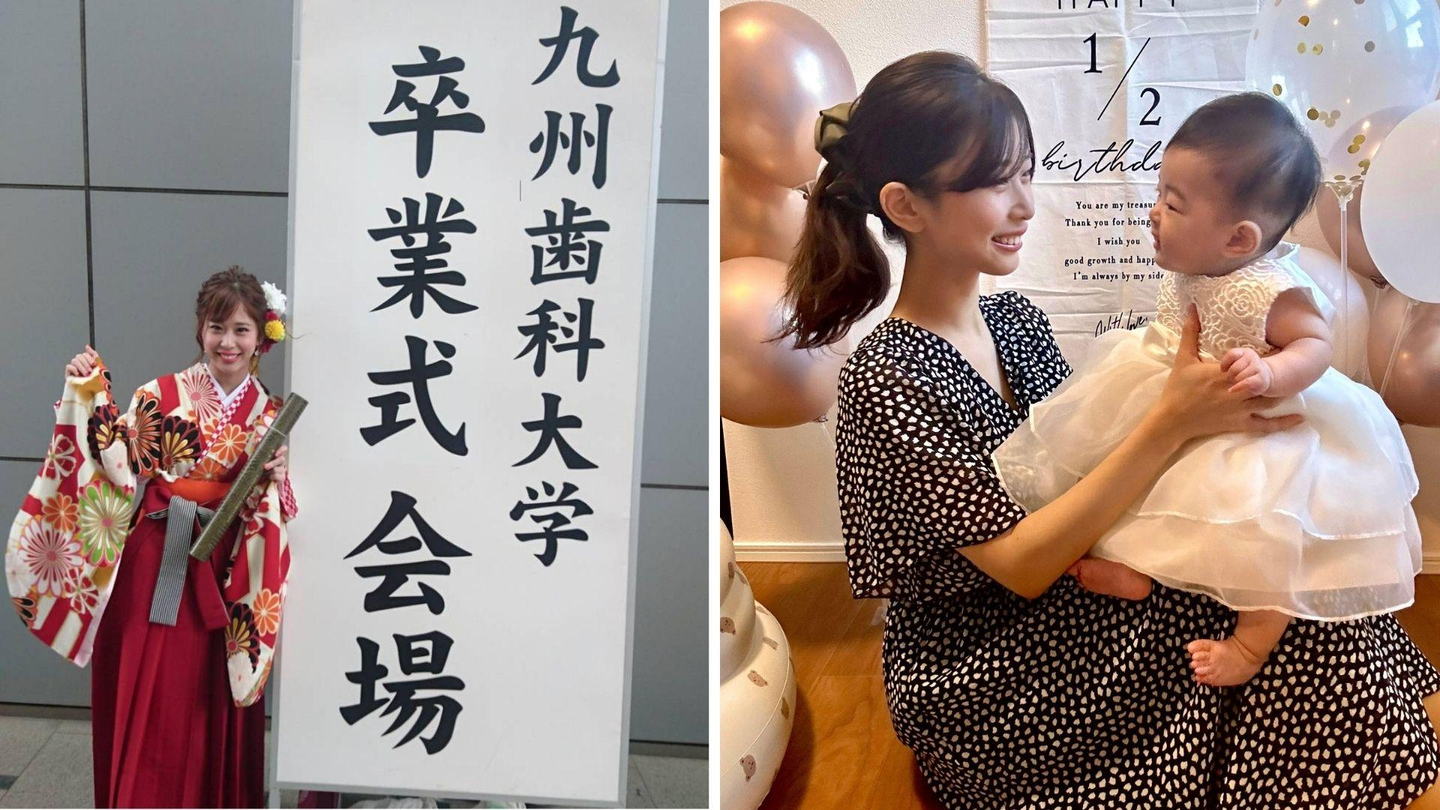 九州歯科大学
卒業式会場
1/2
You are my treasu
Thank you for being
I wish you
good growth and happ
I'm always by my side